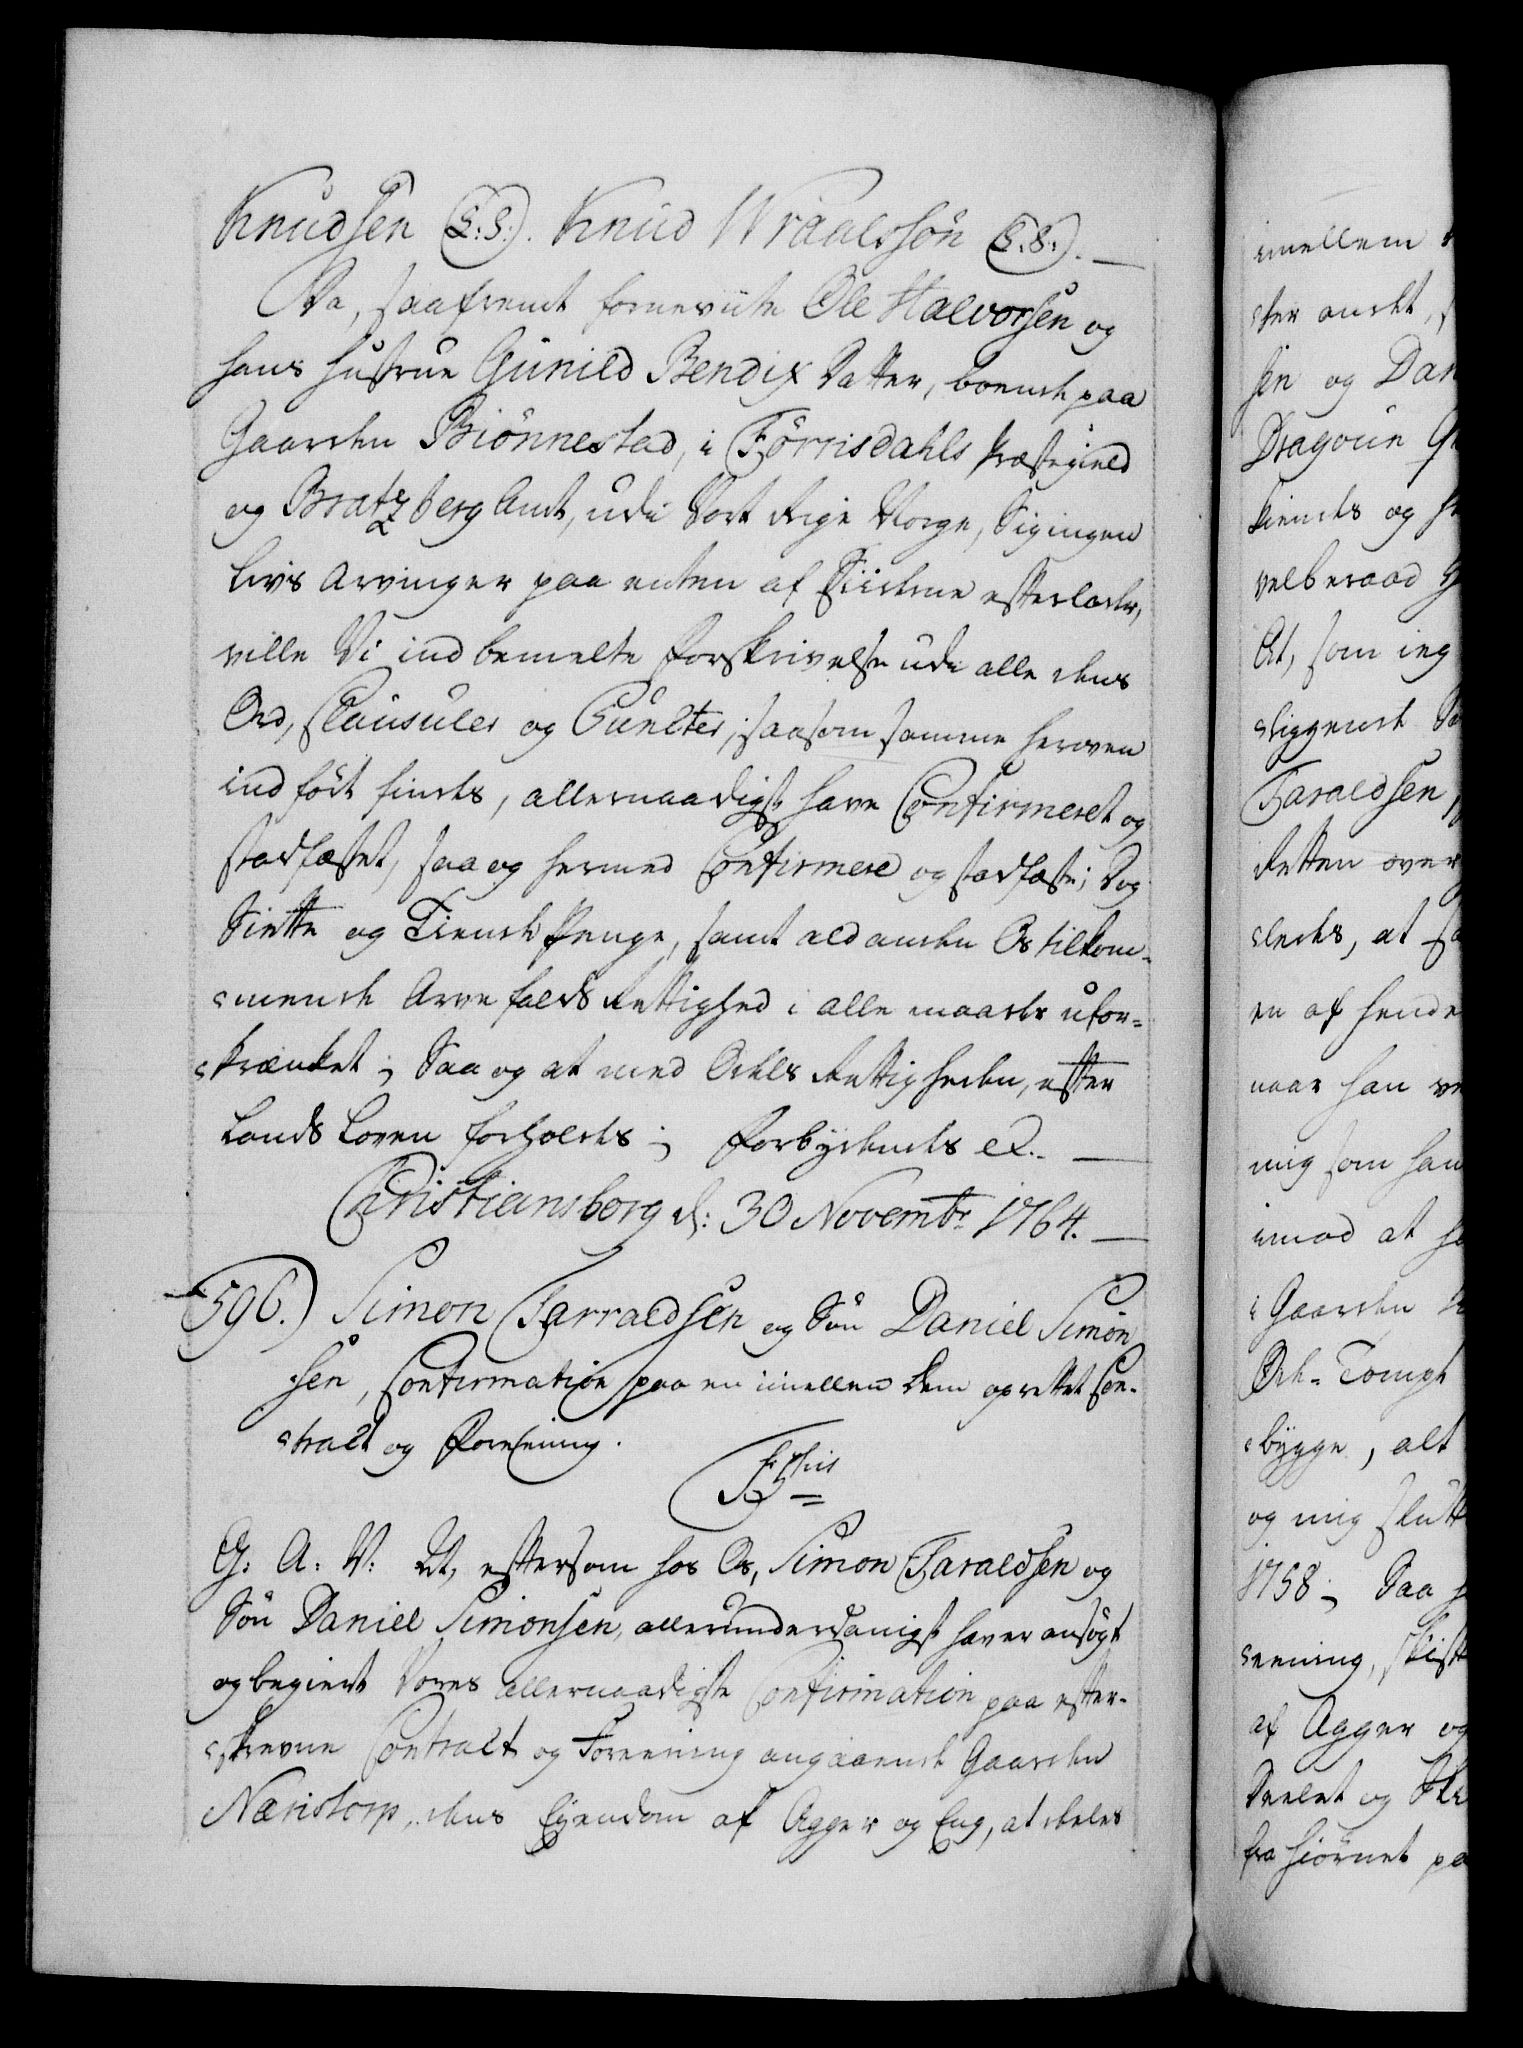 Knudsen (L:S:). Knud Wraalssøn (L:S:). —
Da, saafremt fornevnte Ole Halvorsen og
hans Hustrue Gunild Bendix Datter, boende paa
Gaarden Biönnestad, iFörrisdahls Præstegield
og Bratzberg Amt, udi Vort Rige Norge, Sig ingen
Livs Arvinger paa enten af Siiderne efterlader,
ville Vi ind bemelte Forskrivelse udi alle dens
Ord, Clausuler og Puncter, saasom samme heroven
indført findes, allernaadigst have Confirmeret og
stadfæstet, saa og hermed Confirmere og stadfæste; Dog
Siette og Tiende Penge, samt ald anden Os tilkom-
mende Arvefalds Rettighed i alle maader ufor-
krænket; Saa og at med Odels Rettigheden, efter
Lands Loven forholdes; Forbydendes etc. —
Christiansborg d: 30 Novembr 1764. —
596.) Simon Tarraldsen og Søn Daniel Simon
sen, Confirmation paa en imellem dem oprettet Con-
tract og Foreening.
G: A: V: At, eftersom hos Os, Simon Taraldsen og
Søn Daniel Simonsen, allerunderdanigst haver ansøgt
og begiert Vores allernaadigste Confirmation paa efter-
skrevne Contract og Foreening angaaende Gaarden
Næristorp, dens Eyendom af Agger og Eng, at deeles
imellem
ter andet,
sen og Dan
Dragoun
kiendes og
velberaad
At, som ieg
liggende
Taraldsen,
Retten over
ledes, at
en af hende
naar han
mig som han
imod at
Gaarden
Øde-Tompt
bygge, alt
og mig slutt
1758; Saa
eening,
af Agger og
Deelet og
fra Hiørnet paa